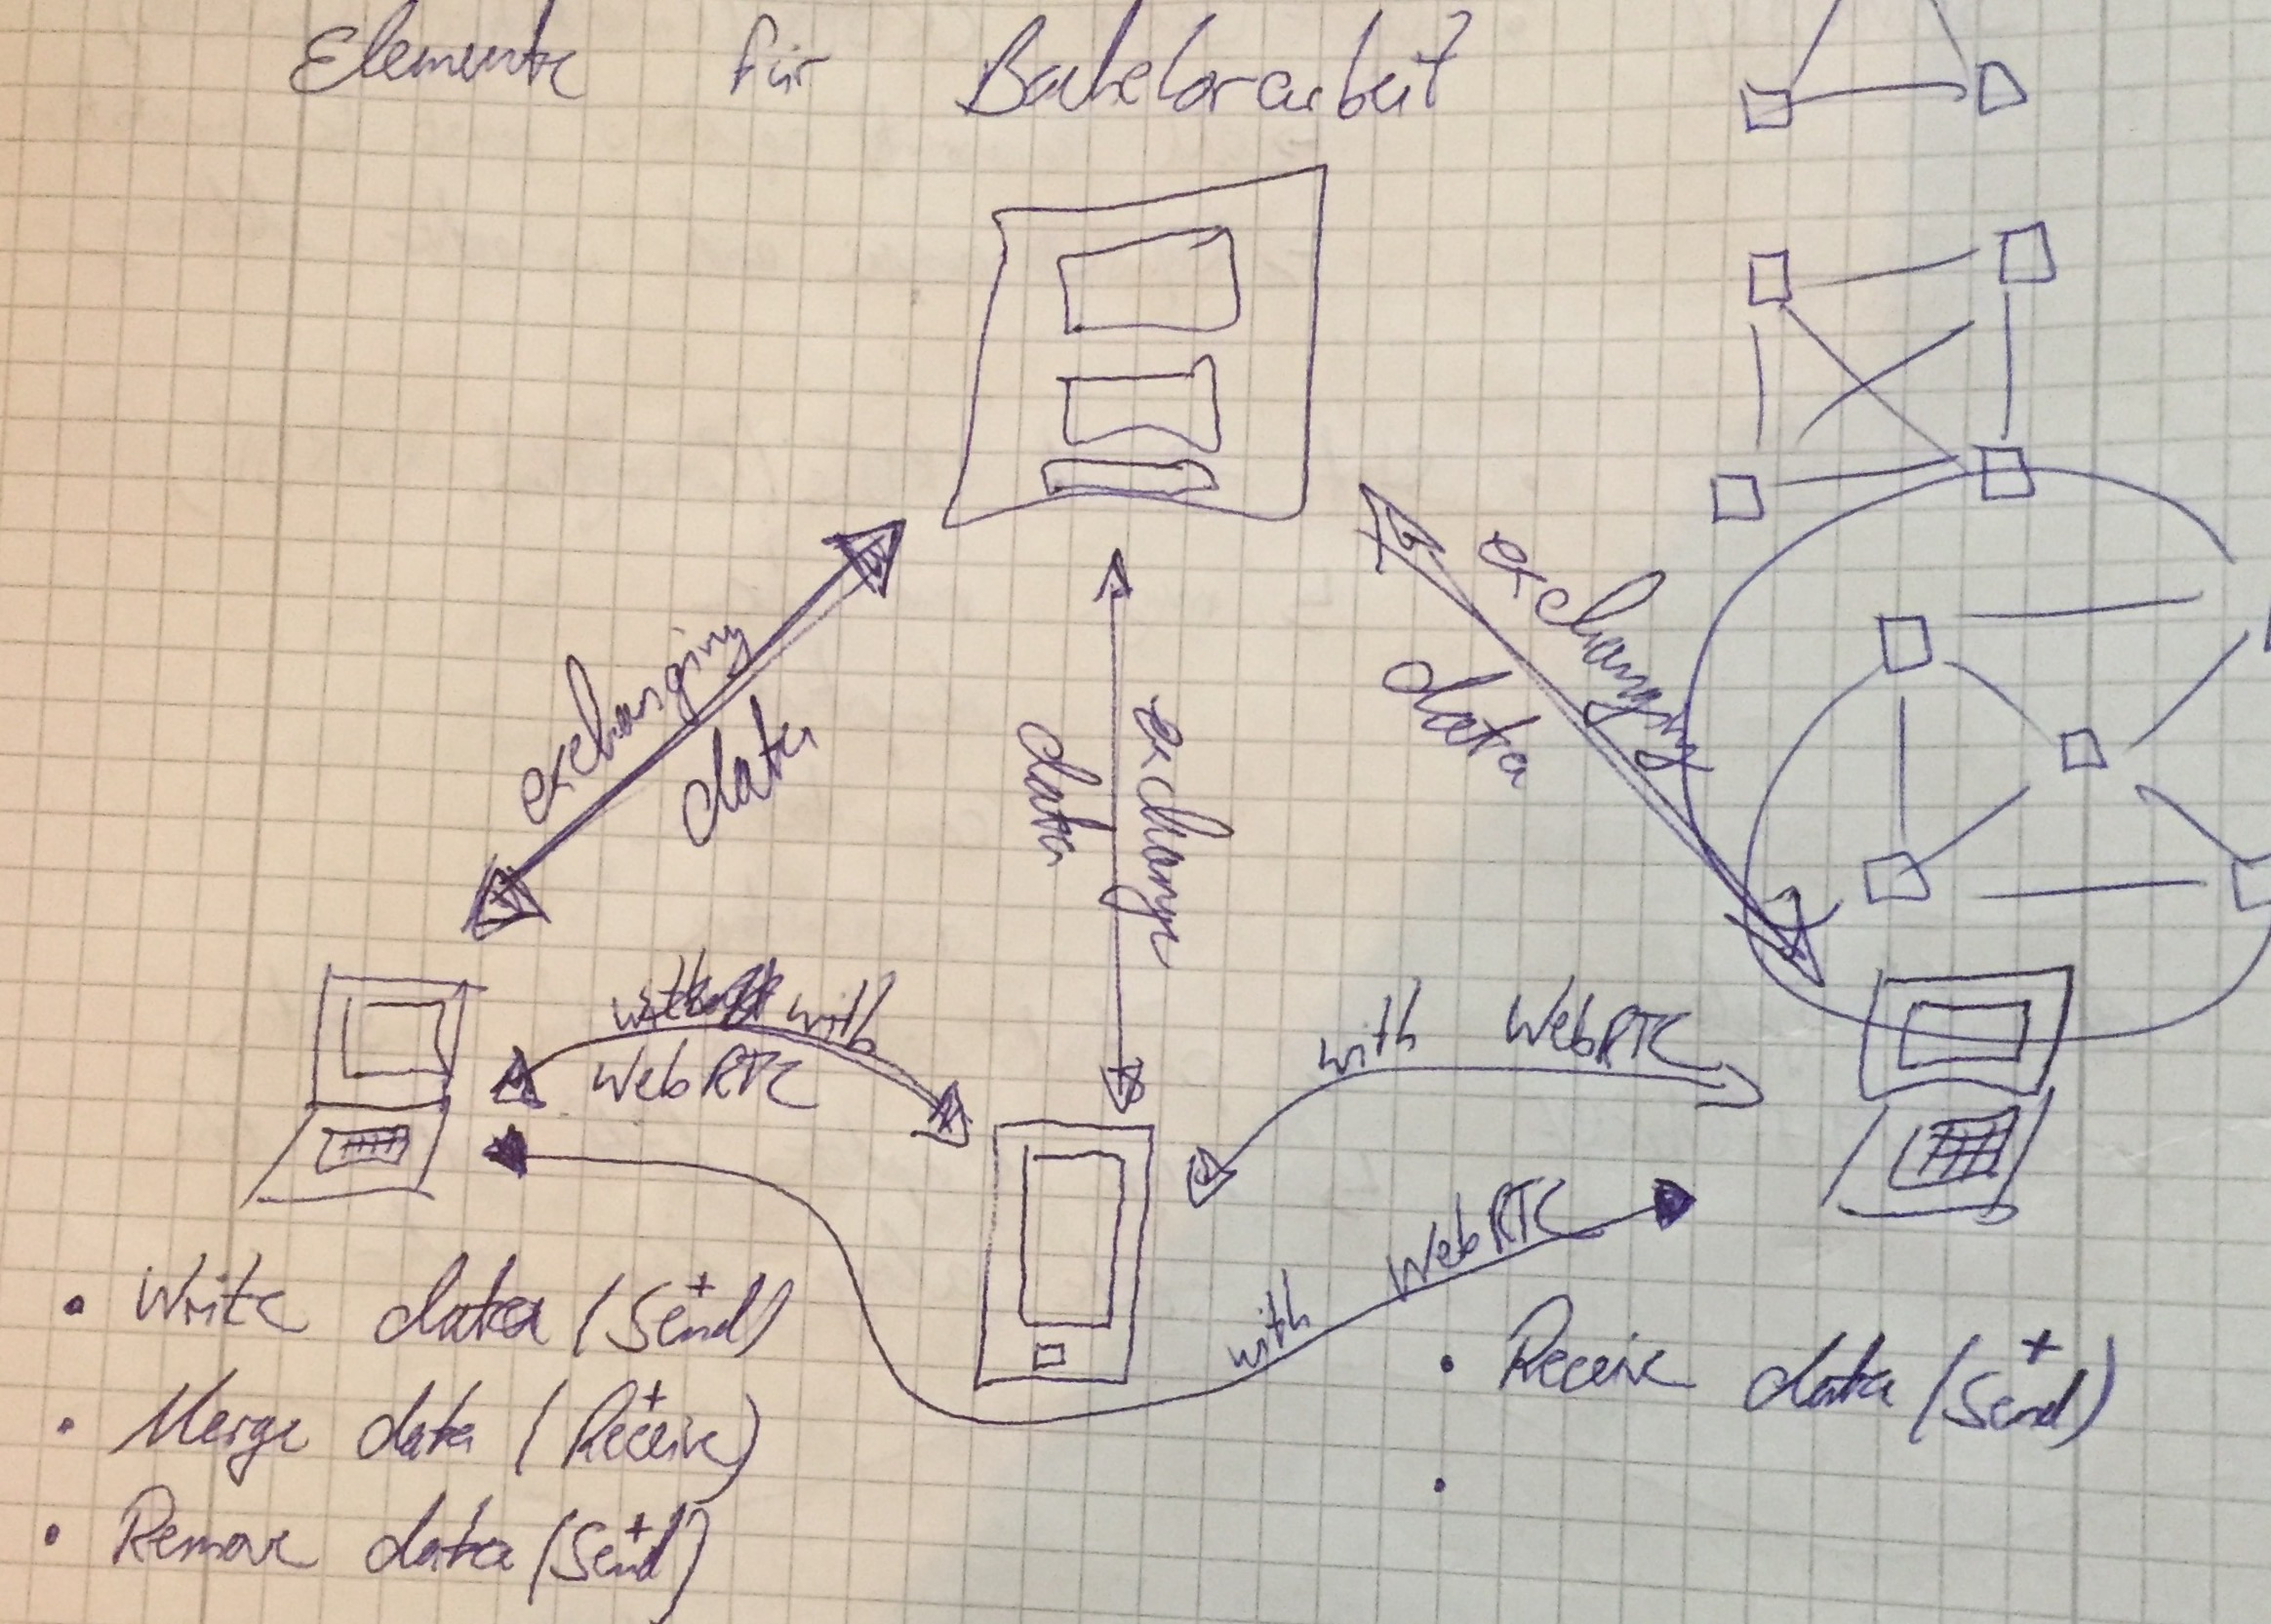 Elemente für Bachelorarbeit
exchanging
data
exchange
data
exchanging
data
with
WebRTC
with WebRTC
with WebRTC
• Write data (+Send)
• Merge data (+Receive)
• Remove data (+Send)
• Receive data (+Send)
•